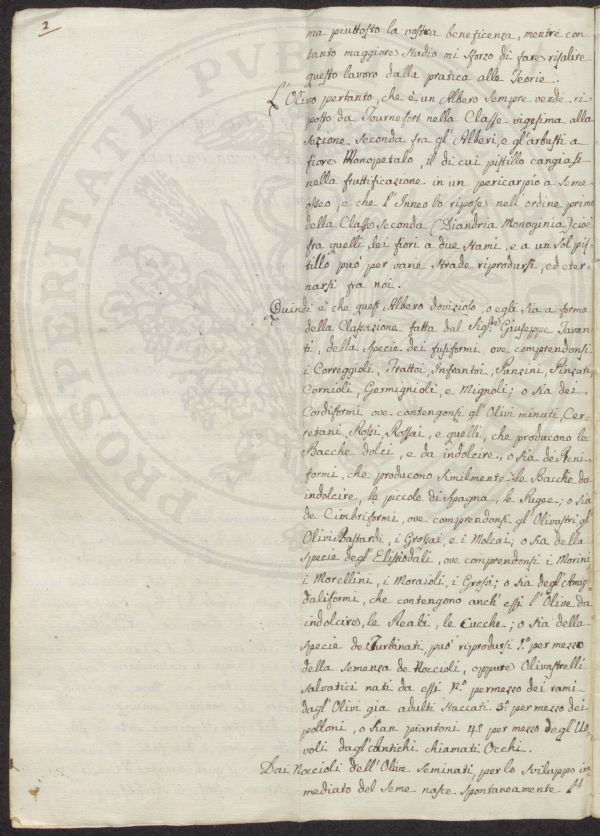 2
ma piuttosto la vostra beneficenza, mentre con
tanto maggiore studio mi sforzo di fare risalire
questo lavoro dalla pratica alle Teorie.
L'Olivo pertanto, che è un Albero sempre verde ri-
posto da Tournefort nella Classe vigesima alla
sezione seconda fra gl'Alberi, e gl'arbusti a
fiore Monopetalo, il di cui pistillo cangiasi
nella fruttificazione in un pericarpio a seme
osseo, e che l'Inneo lo ripose nell'ordine primo
della Classe seconda (Diandria Monoginia) cioè
fra quelli dei fiori a due stami, e a un sol pis-
tillo può per varie strade riprodursi, ed eter-
narsi fra noi.
Quindi è che quest'Albero dovizioso, o egli sia a forma
della Classazione fatta dal Sigre Giuseppe Tavan
ti, della specie dei fusiformi, ove comprendonsi
i Correggioli, Frattoi, Infrantoi, Punzini, Pinzuti
Cornioli, Germignioli, e Mignoli; o sia dei
Cordiformi ove contengonsi gl'Olivi minuti, Cer-
retani, Rossi, Rossai, e quelli, che producono le
Bacche dolci, e da indolcire, o sia de Reni-
formi, che producono similmente le Bacche da
indolcire, le piccole di Spagna, le Puree; o sia
de Cimbriformi, ove comprendonsi gl'Olivastri gl'
Olivi Bastardi, i Grossai, e i Molcai; o sia della
specie degl'Elissoidali, ove comprendonsi i Morini
i Morellini, i Moraioli, i Grossi; o sia degl'Amig
daliformi, che contengono anch'essi l'Olive da
indolcire, le Reali, le Cucche; o sia della
specie de Turbinati, può riprodursi 1.o per mezzo
della semenza de Noccioli, oppure Olivastrelli
salvatici nati da essi 2.o per mezzo dei rami
dagl'Olivi già adulti staccati. 3.o per mezzo dei
polloni, o sian piantoni 4.o per mezzo degl'Uo-
voli dagl'Antichi chiamati Occhi.
Dai Noccioli dell'Olive seminati, per lo sviluppo im
mediato del seme nasce spontaneamente
PROSPERITATI PVBLICAE